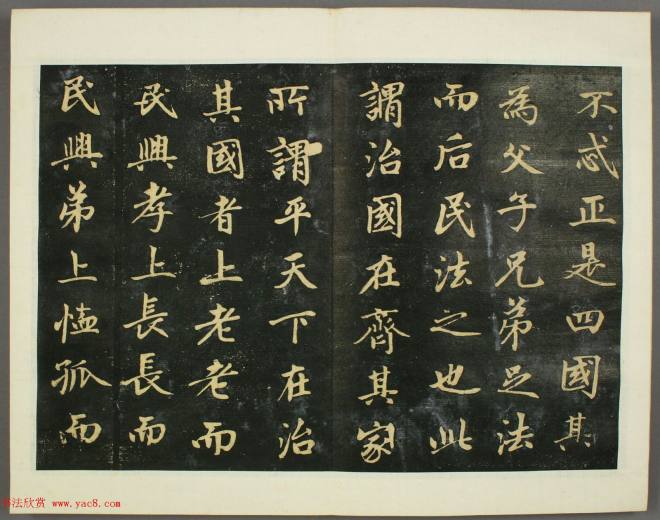 不忒正是四國其
為父子兄弟足法
而后民法之也此
謂治國在齊其家
所謂平天下在治
其國者上老老而
民興孝上長長而
民興弟上恤孤而
书法欣赏 www.yac8.com